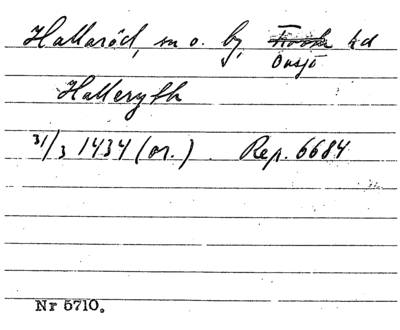 Hallaröd, sn o. by, Onsjö hd
Halleryth
31/3 1434 (or.) Rep. 6684
Nr 5710.